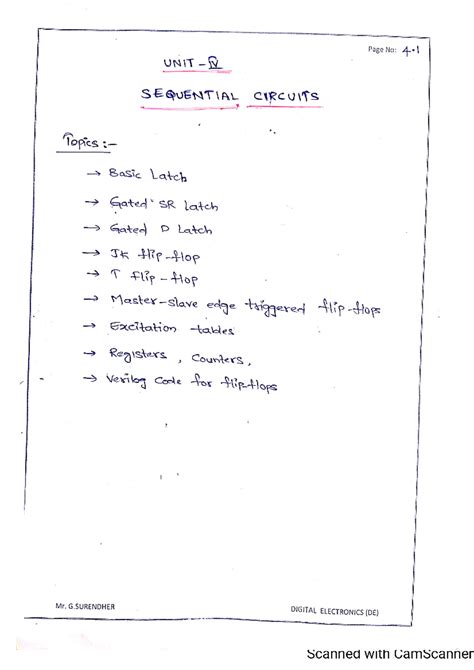 Page No: 4.1
UNIT - IV
SEQUENTIAL CIRCUITS
Topics :-
→ Basic Latch
→ Gated SR Latch
→ Gated D Latch
→ JK flip-flop
→ T flip-flop
→ Master-slave edge triggered flip-flops
→ Excitation tables
→ Registers, Counters,
→ Verilog Code for flip-flops
Mr. G.SURENDHER
DIGITAL ELECTRONICS (DE)
Scanned with CamScanner